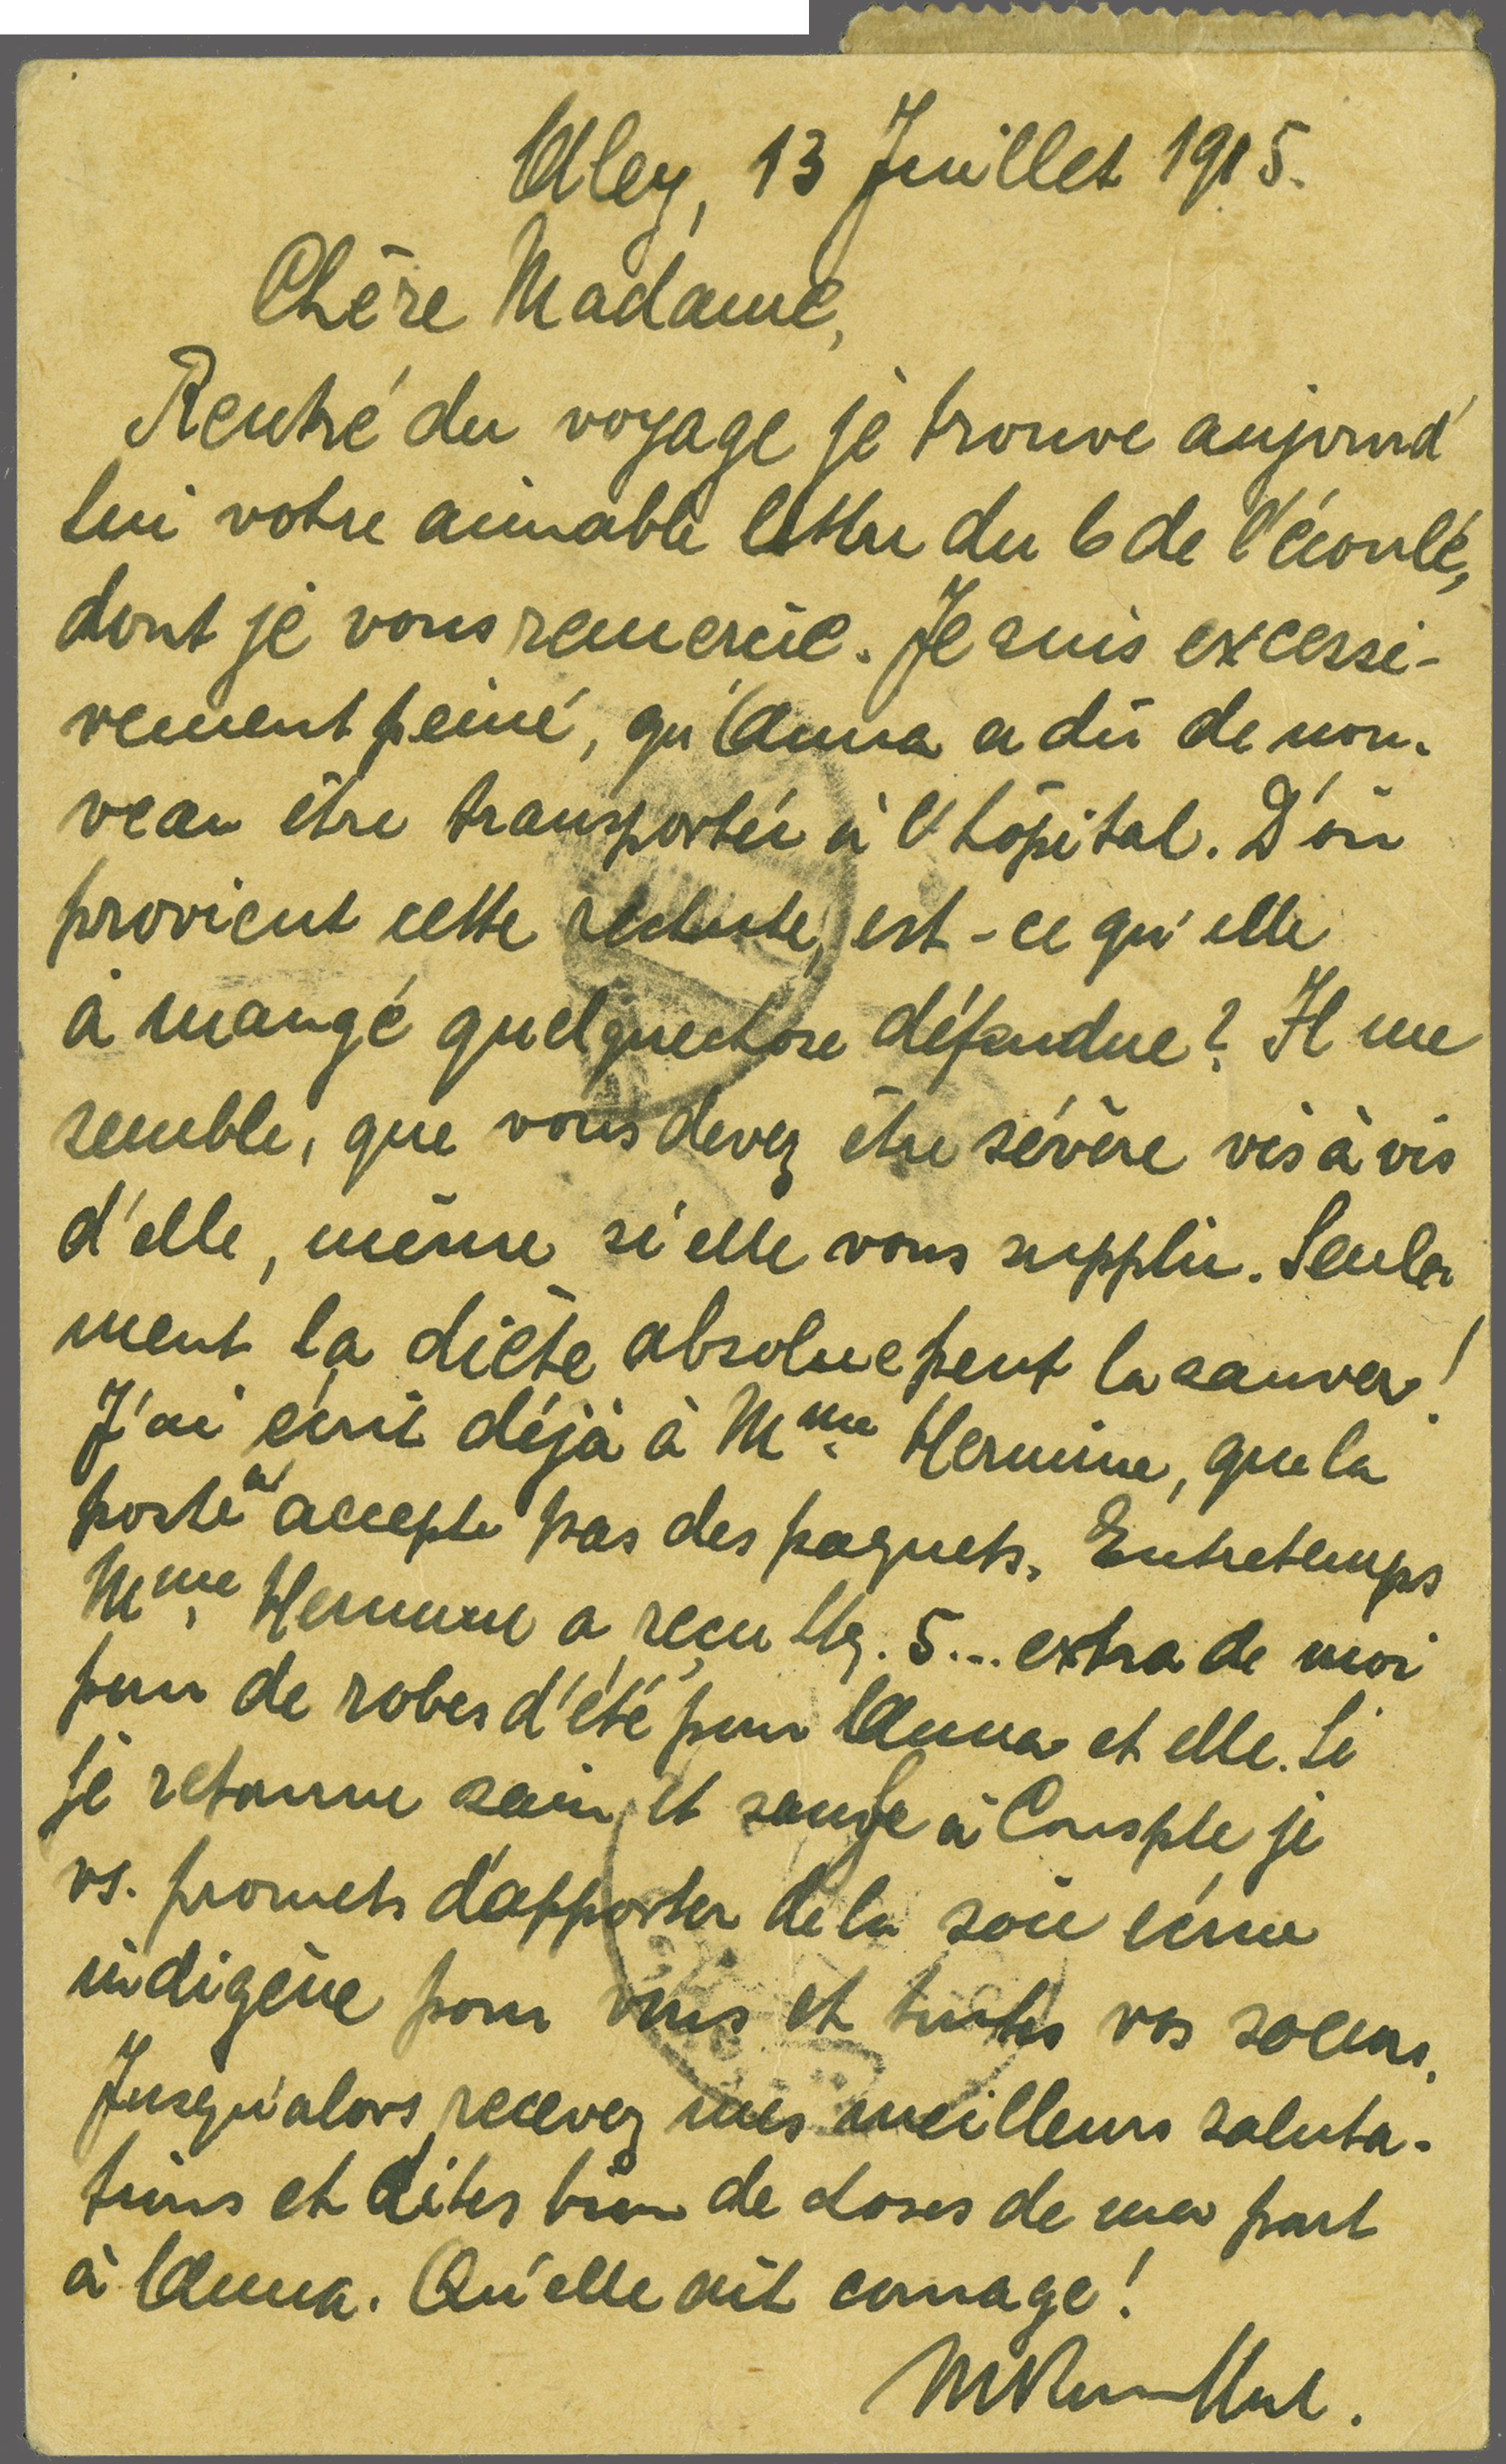 Aley, 13 Juillet 1915.
Chère Madame,
Rentré du voyage je trouve aujourd'
hui votre aimable lettre du 6 de l'écoulé,
dont je vous remercie. Je suis excessi-
vement peiné, qu'Anna a dû de nou-
veau être transportée à l'hôpital. D'où
provient cette rechute, est-ce qu'elle
à mangé quelquechose défendue? Il me
semble, que vous devez être sévère vis à vis
d'elle, même si elle vous supplie. Seule
ment la diète absolue peut la sauver!
J'ai écrit déjà à Mme Hermine, que la
poste n'accepte pas des paquets. Entretemps
Mme Hermine a reçu 5... extra de moi
pour de robes d'été pour Anna et elle. Si
je retourne sain et sauf à Consple je
vs. promets d'apporter de la soie écrue
indigène pour vous et toutes vos soeurs.
Jusqu'alors recevez mes meilleurs saluta-
tions et dites bien de choses de ma part
à Anna. Qu'elle ait courage!